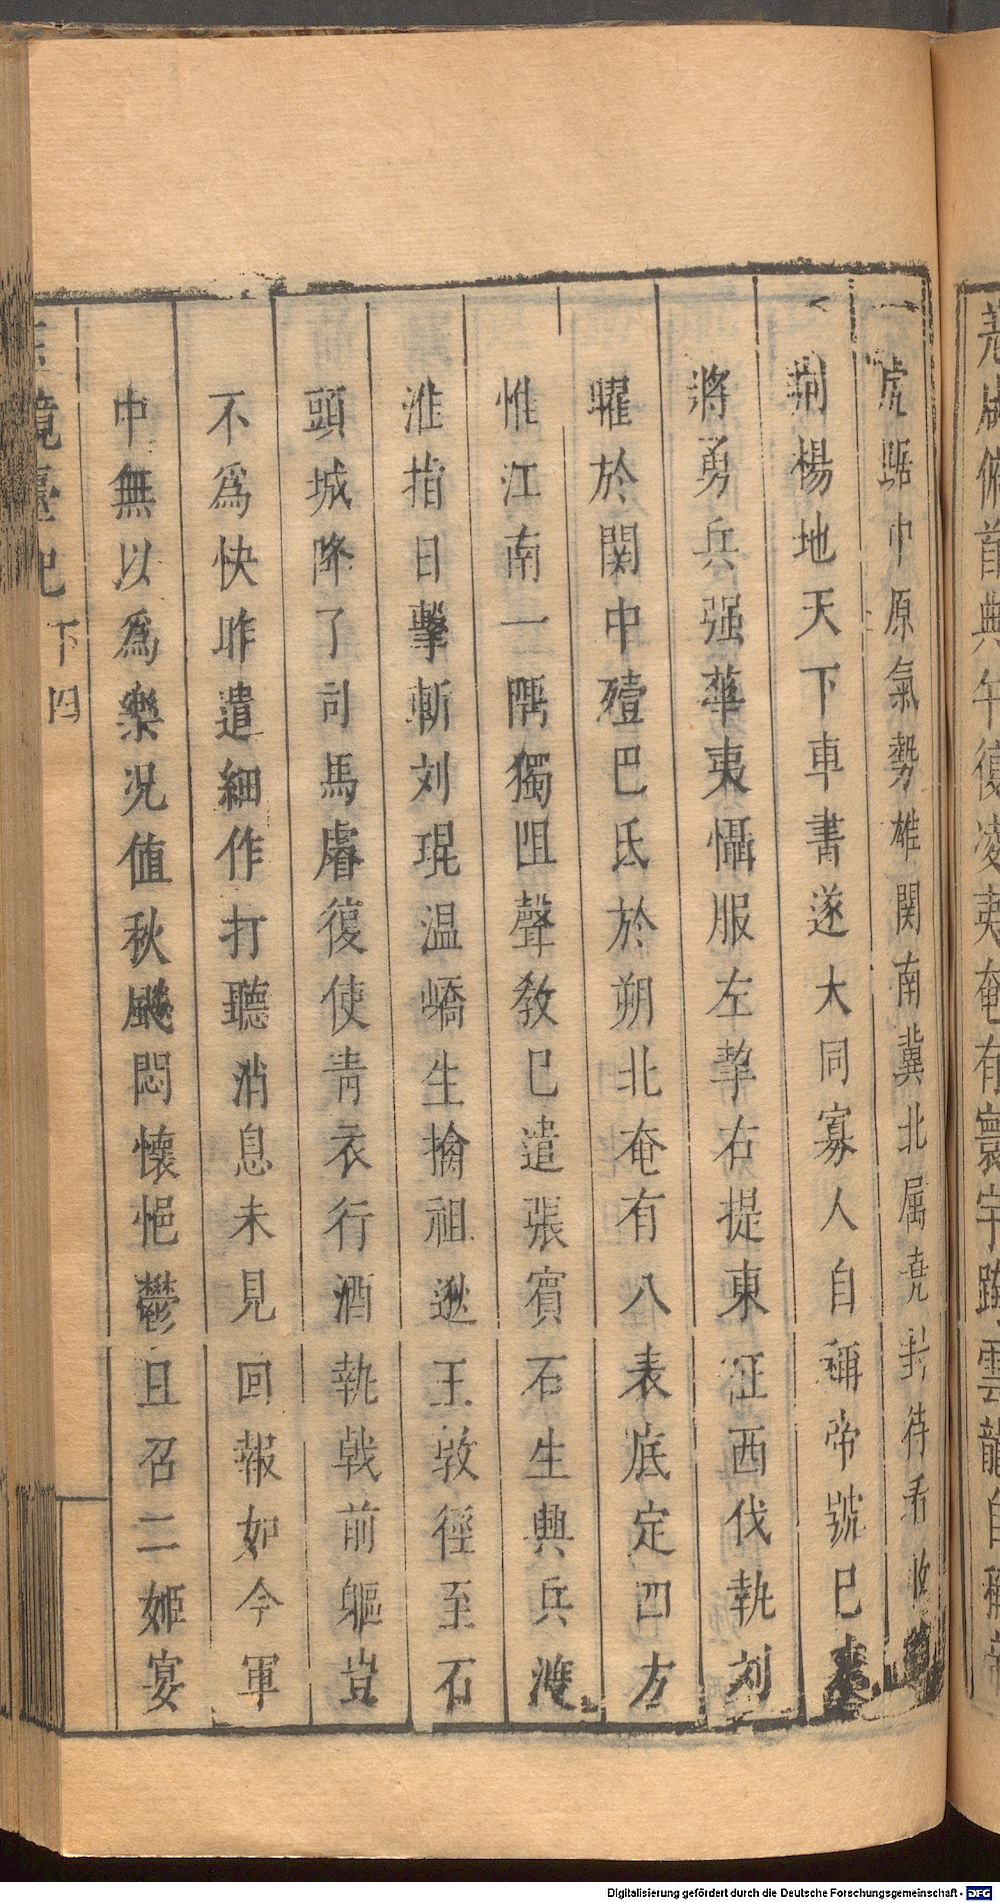 虎踞中原氣勢雄関南冀北属堯封待看收
荆楊地天下車書遂大同寡人自稱帝號已來
將勇兵强華夷懾服左挈右提東征西伐執刘
曜於関中殪巴氐於朔北奄有八表底定四方
惟江南一隅獨阻聲敎已遣張賓石生興兵渡
淮指日擊斬刘琨温嶠生擒祖逖王敦徑至石
頭城降了司馬睿復使青衣行酒執戟前軀豈
不爲快昨遣細作打聽消息未見回報如今軍
中無以爲樂况值秋飈悶懷悒鬱且召二姬宴
玉鏡臺記 下 四
Digitalisierung gefördert durch die Deutsche Forschungsgemeinschaft - DFG